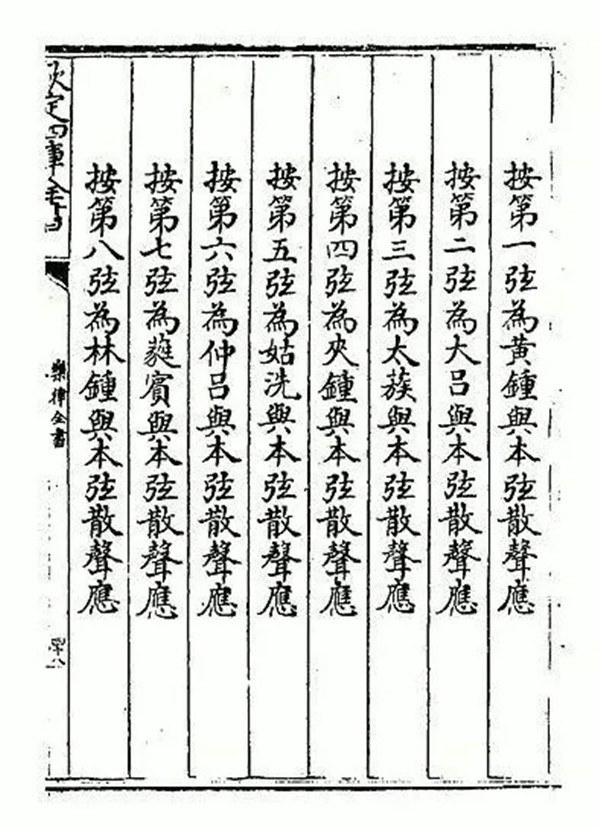 按第一弦為黃鍾與本弦散聲應
按第二弦為大呂與本弦散聲應
按第三弦為太蔟與本弦散聲應
按第四弦為夾鍾與本弦散聲應
按第五弦為姑洗與本弦散聲應
按第六弦為仲呂與本弦散聲應
按第七弦為蕤賓與本弦散聲應
按第八弦為林鍾與本弦散聲應
欽定四庫全書
樂律全書